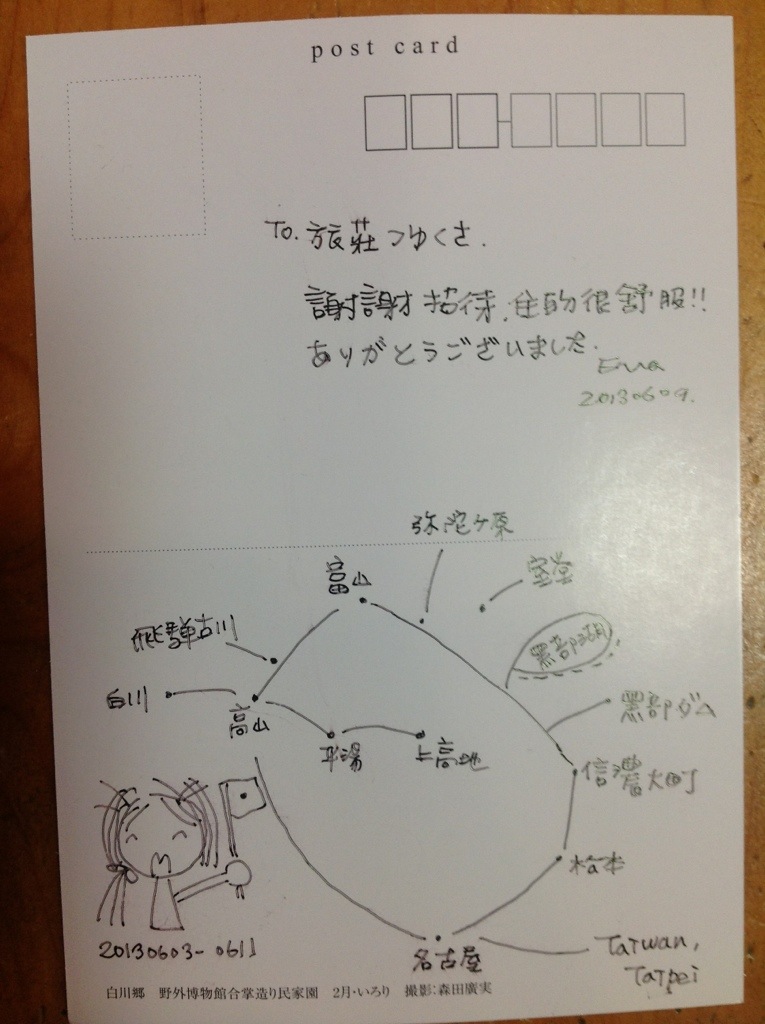 post card
To. 旅莊つゆくさ.
謝謝招待,住的很舒服!!
ありがとうございました.
20130609.
弥陀ケ原
富山
室堂
飛驒古川
黒部湖
白川
高山
黒部ダム
平湯
上高地
信濃大町
松本
20130603-0611
名古屋
Taiwan,
Taipei
白川郷 野外博物館合掌造り民家園 2月・いろり 撮影:森田廣実